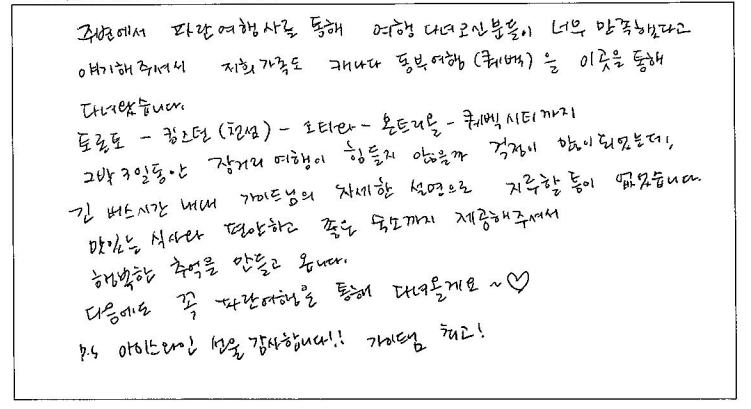 주변에서 파란여행사를 통해 여행 다녀오신분들이 너무 만족했다고
얘기해주셔서 저희가족도 캐나다 동부여행(퀘벡)을 이곳을 통해
다녀왔습니다.
토론토 - 킹스턴(천섬) - 오타와 - 몬트리올 - 퀘벡시티까지
2박 3일동안 장거리 여행이 힘들지 않을까 걱정이 많이되었는데,
긴 버스시간 내내 가이드님의 자세한 설명으로 지루할 틈이 없었습니다.
맛있는 식사와 편안하고 좋은 숙소까지 제공해주셔서
행복한 추억을 만들고 옵니다.
다음에도 꼭 파란여행을 통해 다녀올게요~♡
P.S 아이스와인 선물 감사합니다!! 가이드님 최고!